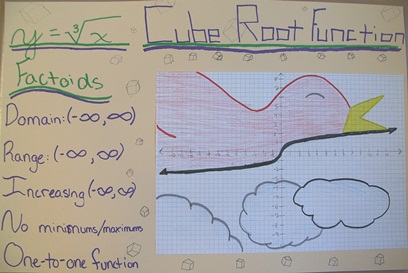 y = ∛x
Cube Root Function
Factoids
Domain: (-∞, ∞)
Range: (-∞, ∞)
Increasing (-∞, ∞)
No minimums/maximums
One-to-one function